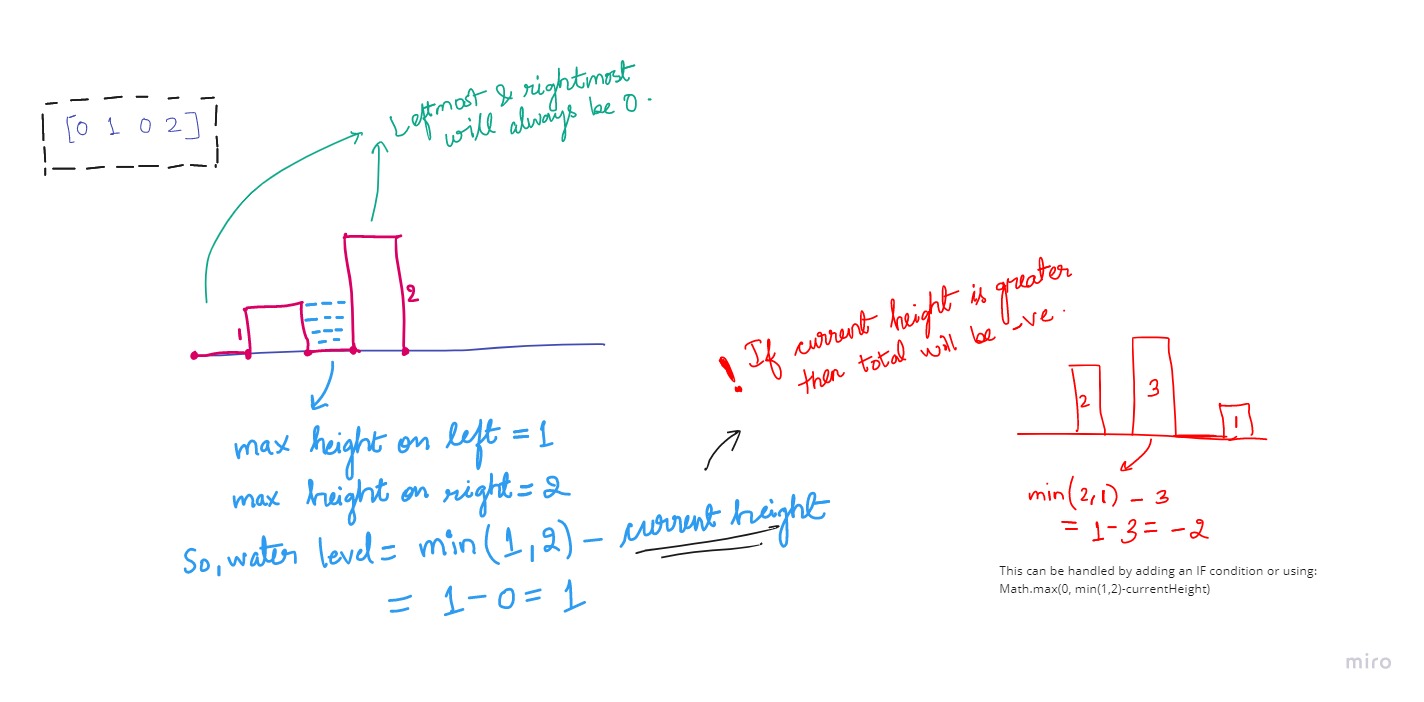 [0 1 0 2]
Leftmost & rightmost
will always be 0.
1
2
max height on left = 1
max height on right = 2
So, water level = min(1,2) - current height
= 1-0 = 1
! If current height is greater
then total will be -ve.
2
3
1
min(2,1) - 3
= 1-3 = -2
This can be handled by adding an IF condition or using:
Math.max(0, min(1,2)-currentHeight)
miro